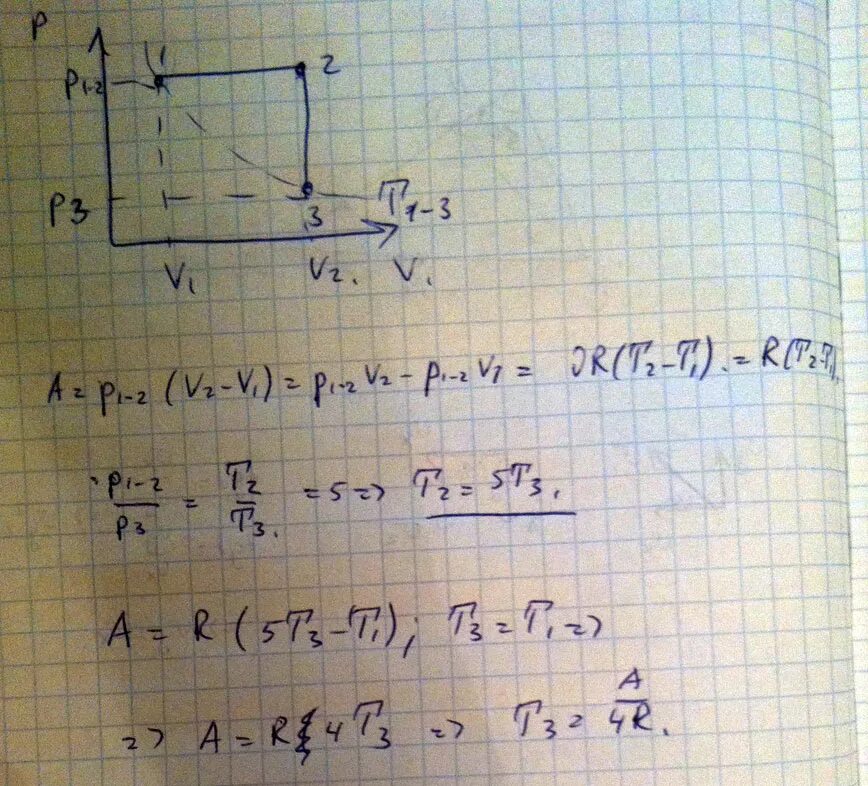 P
1
2
P1-2
P3
3
T1-3
V1
V2.
V.
A = p1-2 (V2-V1) = p1-2 V2 - p1-2 V1 = JR(T2-T1). = R(T2-T1).
p1-2/p3 = T2/T3. = 5 => T2 = 5T3.
A = R (5T3-T1); T3 = T1 =>
=> A = R 4T3 => T3 = A/4R.